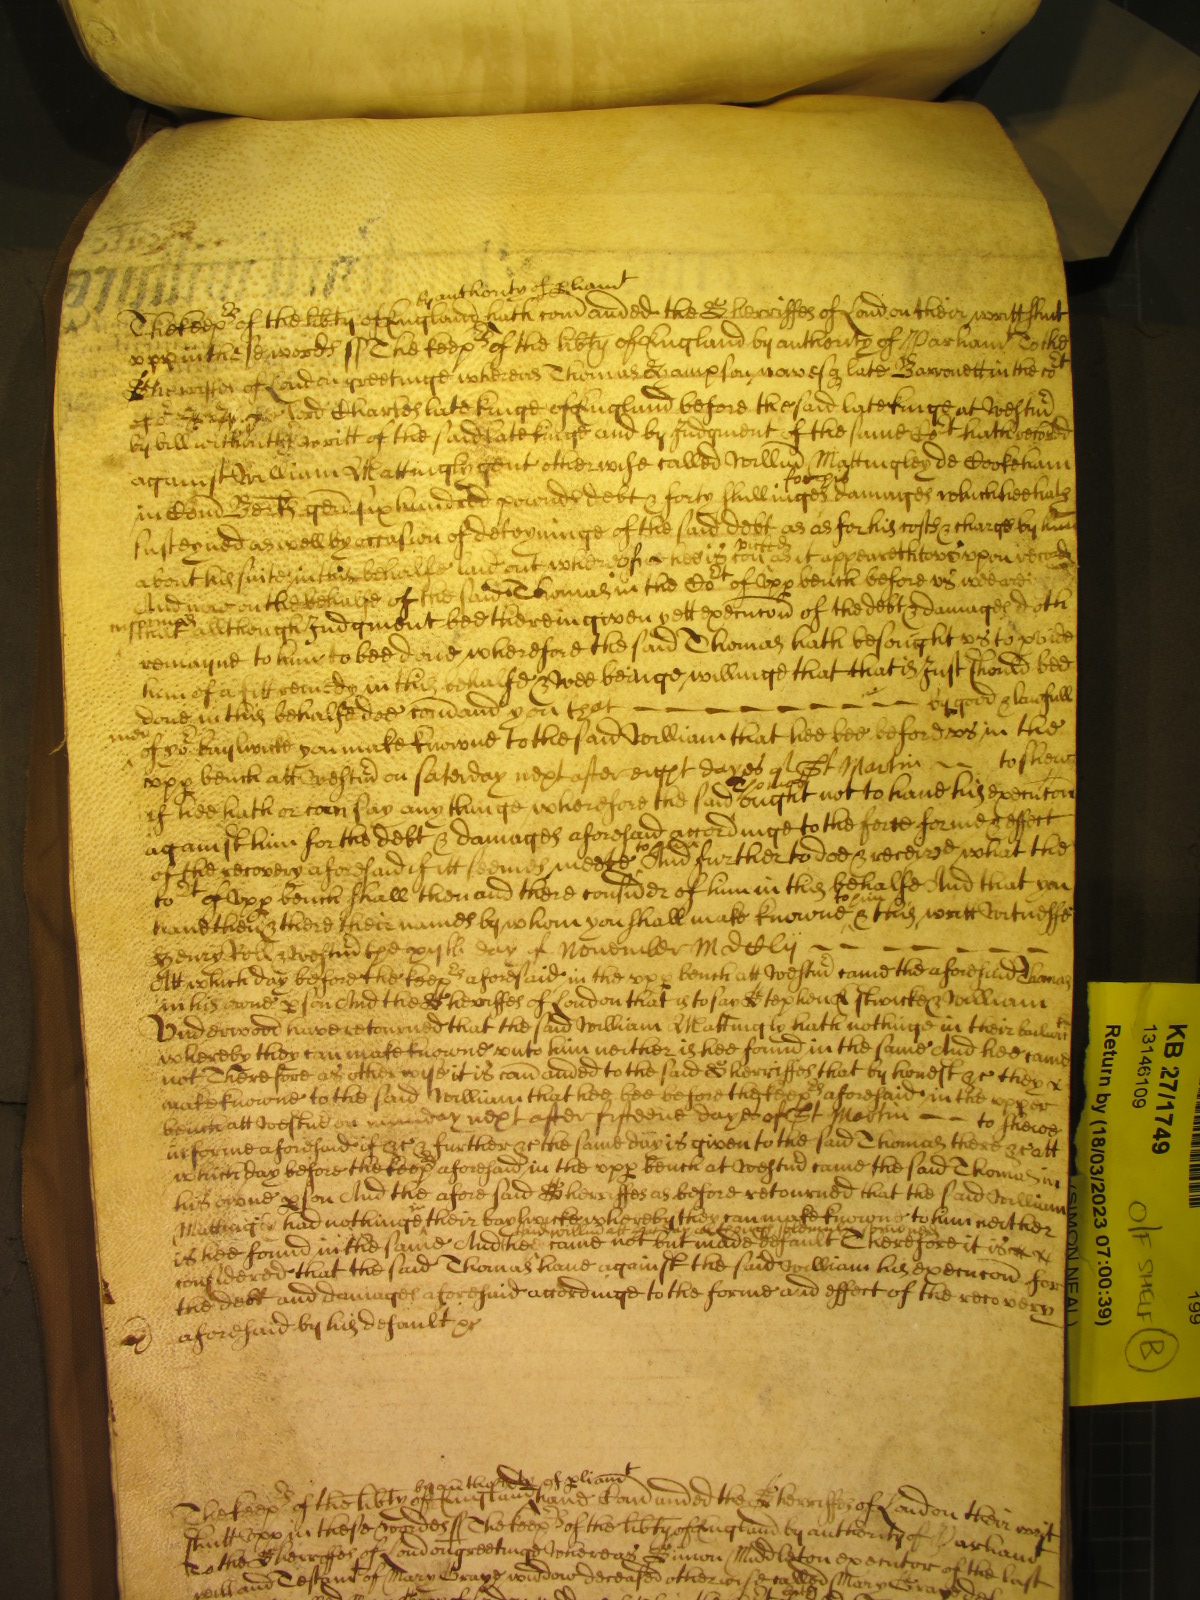 by authority of Parliamt
The keeprs of the libty of England hath comanded the Sherriffes of London their writt shutt
upp in these words ss The keeprs of the libty of England by authority of Parliamt To the
Sherriffes of London greetinge whereas Thomas Sampson now esq late Barronett in the cort
of Lord Charles late kinge of England before the said late kinge at Westmr
by bill without the writt of the said late kinge and by Judgment of the same Cort hath recoved
against William Mattingly gent otherwise called Willm Mattingley de Cookeham
in Com Berk gen six hundred pounds debt & forty shillinges for his damages which hee hath
susteyned as well by occasion of deteyninge of the said debt as for his costs & charges by him
about his suite in this behalfe laid out whereof hee is convicted as it appeareth to us upon record
And now on the behalfe of the said Thomas in the Cort of Upp bench before us wee are
informed that allthough Judgment bee therein given yett execucon of the debt & damages doth
remayne to him to bee done wherefore the said Thomas hath besought us to pvide
him of a fitt remedy in this behalfe & Wee beinge willinge that that is Just should bee
done in this behalfe doe comand you that by good & lawfull
men of yor bayliwicke you make knowne to the said William that hee bee before us in the
upp bench att Westmr on Saterday next after eight dayes of St Martin to shewe
if hee hath or can say any thinge wherefore the said Thomas ought not to have his execucon
against him for the debt & damages aforesaid accordinge to the force forme & effect
of the recovery aforesaid if itt seemes meete to And further to doe & receive what the
cort of Upp bench shall then and there consider of him in this behalfe And that you
have then & there their names by whom you shall make knowne to him & this writt Witnesse
Henry Roll att Westmr the day of November MdClij
Att which day before the keeprs aforesaid in the upp bench att Westmr came the aforesaid Thomas
in his owne pson And the Sherriffes of London that is to say Stephen Estwicke & William
Underwood have retourned that the said William Mattingly hath nothinge in their bailiwick
whereby they can make knowne unto him neither is hee found in the same And hee came
not Therefore as otherwise it is comanded to the said Sherriffes that by honest &c they
make knowne to the said William that hee bee before the keeprs aforesaid in the upper
bench att Westmr on munday next after fifteene dayes of St Martin to shewe
in forme aforesaid if &c & further &c the same day is given to the said Thomas there &c att
which day before the keeprs aforesaid in the upp bench at Westmr came the said Thomas in
his owne pson And the aforesaid Sherriffes as before retourned that the said William
Mattingly had nothinge in their bayliwicke whereby they can make knowne to him neither
is hee found in the same And the said William although solemnly
came not but made default Therefore it is
considered that the said Thomas have against the said William his execucon for
the debt and damages aforesaid accordinge to the forme and effect of the recovery
aforesaid by his default &c
by authority of pliamt
The keeprs of the libty of England have Comanded the Sherriffes of London their writ
shutt upp in these wordes ss The keeprs of the libty of England by authority of Parliamt
To the Sherriffes of London greetinge Whereas Simon Middleton executor of the last
will and Testamt of Mary Graye widdow deceased otherwise called Mary Graye
KB 27/1749
13146109
Return by (18/03/2023 07:00:39)
(SIMON NEAL)
O/F SHELF B
199